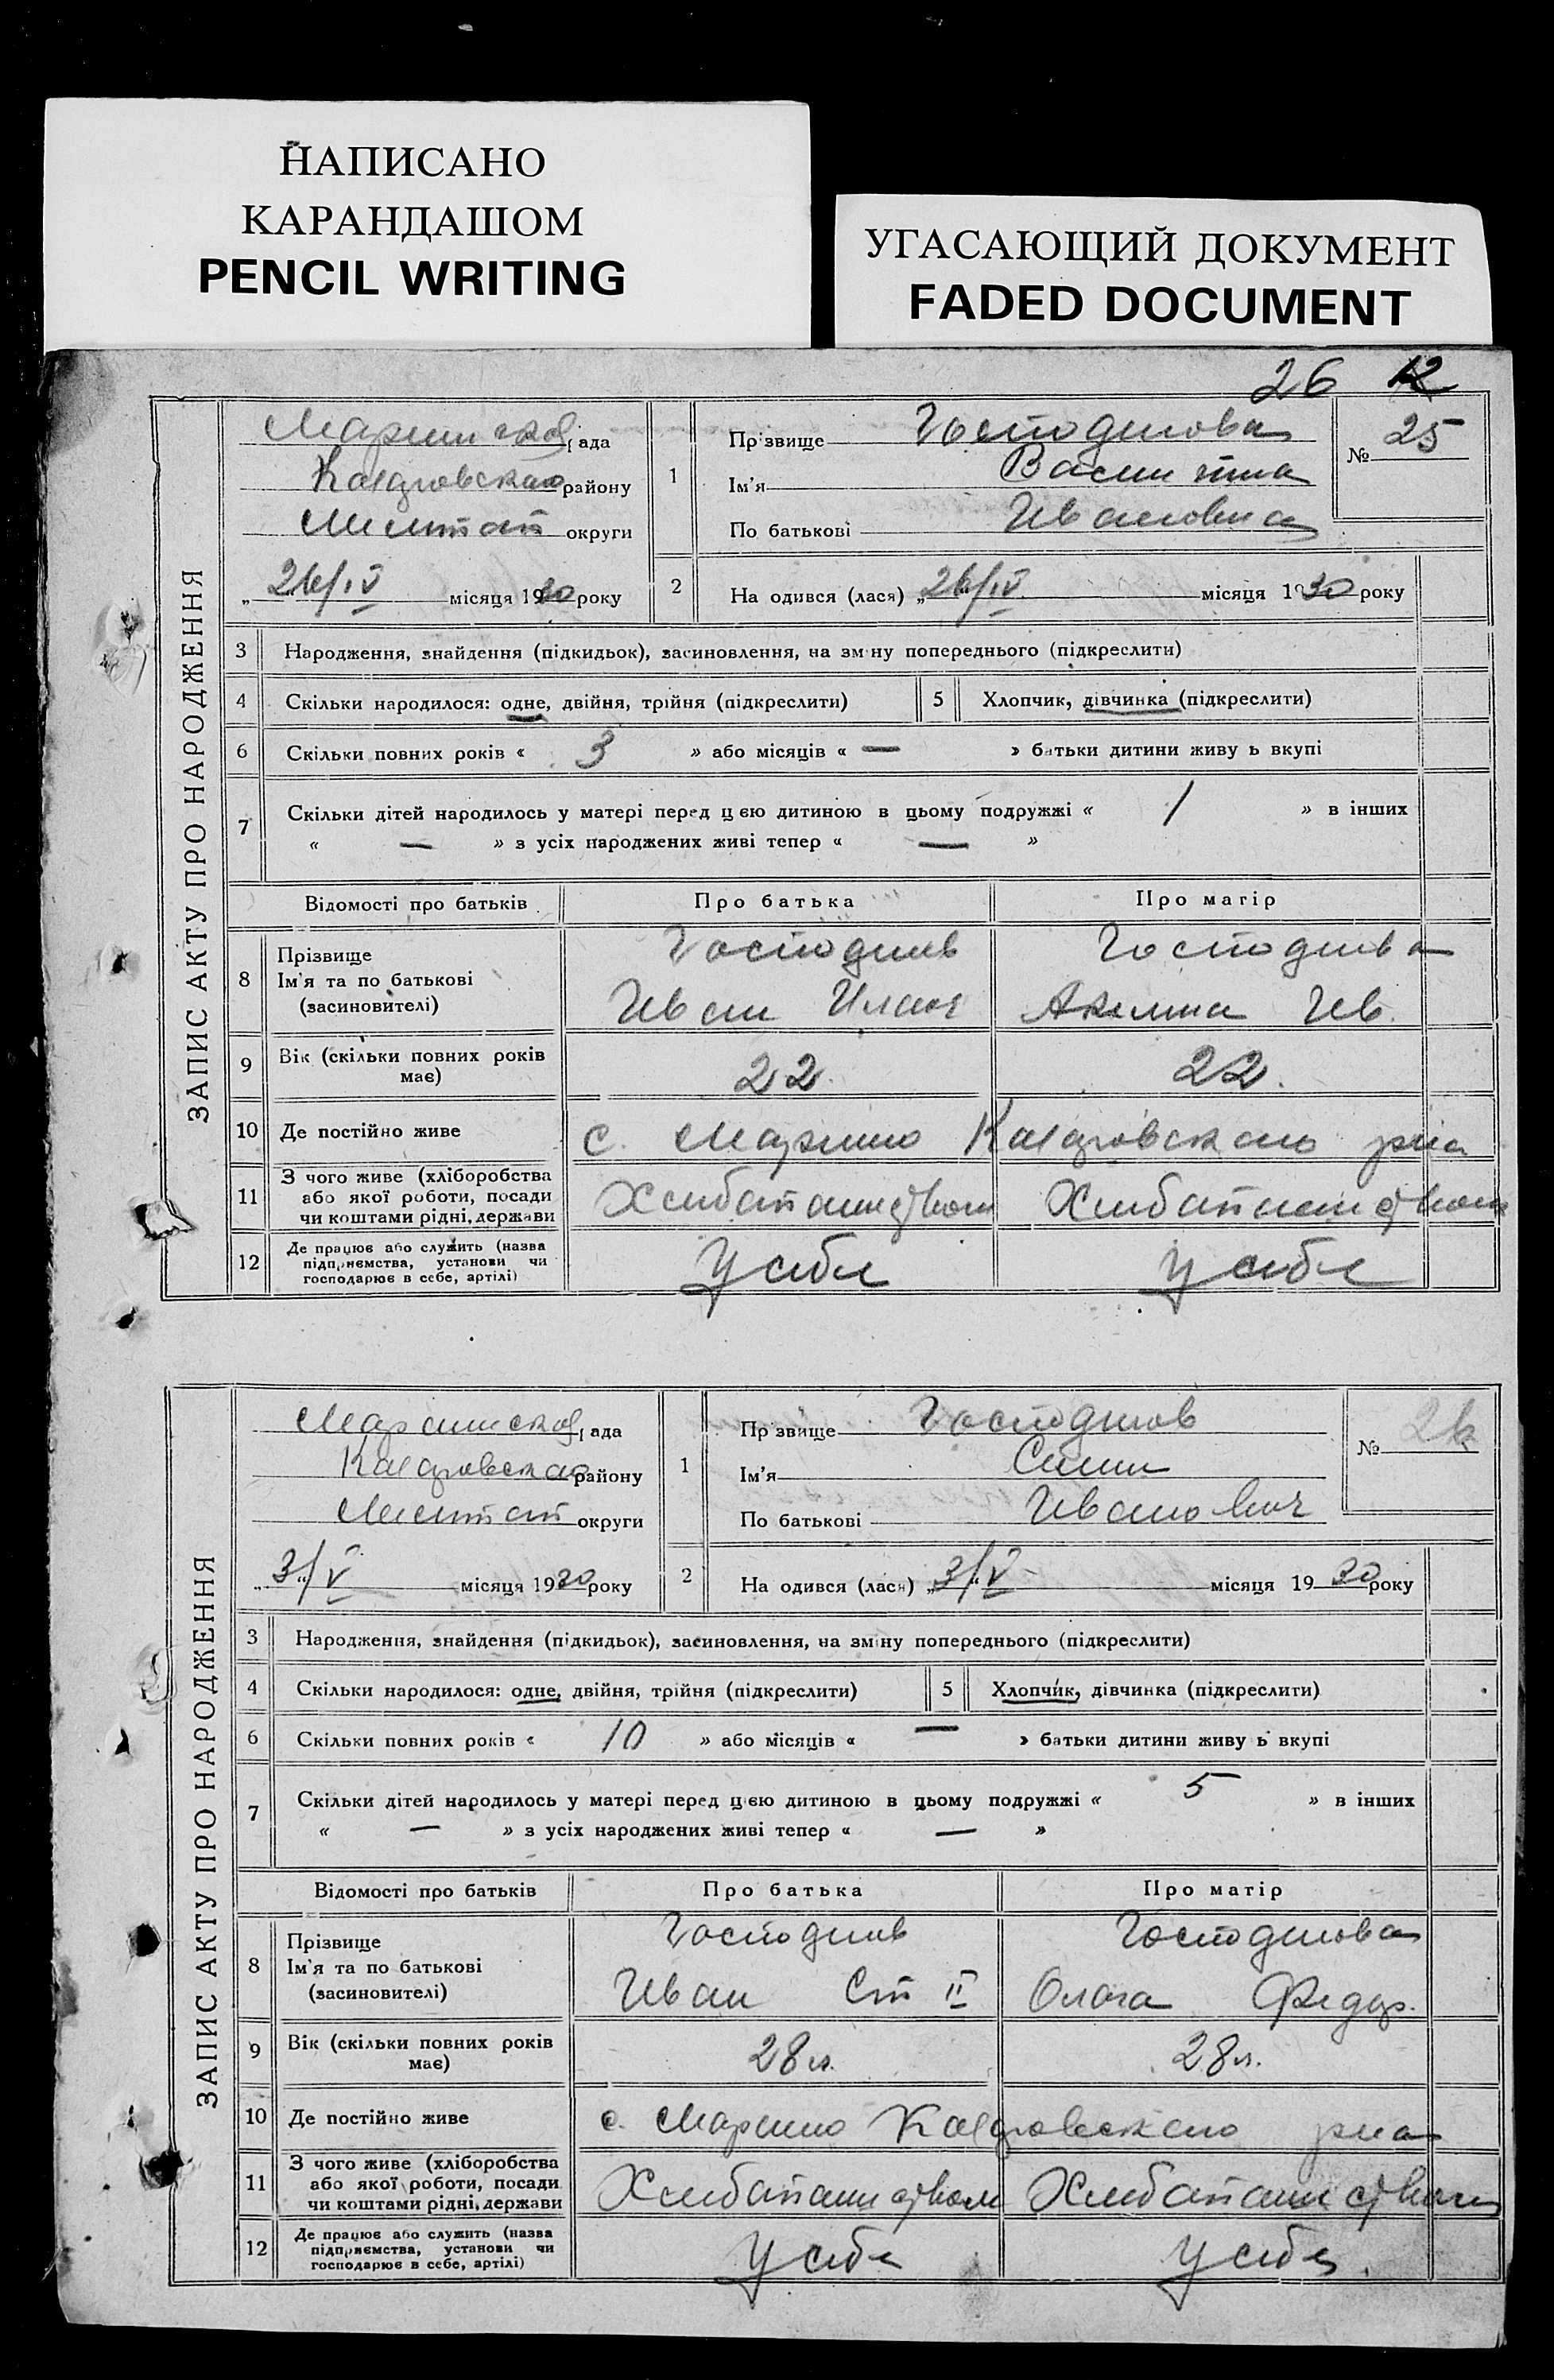 НАПИСАНО
КАРАНДАШОМ
PENCIL WRITING
УГАСАЮЩИЙ ДОКУМЕНТ
FADED DOCUMENT
26 12
ЗАПИС АКТУ ПРО НАРОДЖЕННЯ
рада
району
округи
„26/IV місяця 1930 року
1 Прізвище Господинова
Ім'я
По батькові Ивановна
№ 25
2 На одився (лася) „26/IV місяця 1930 року
3 Народження, знайдення (підкидьок), засиновлення, на зміну попереднього (підкреслити)
4 Скільки народилося: одне, двійня, трійня (підкреслити)
5 Хлопчик, дівчинка (підкреслити)
6 Скільки повних років « 3 » або місяців « — » батьки дитини живу ь вкупі
7 Скільки дітей народилось у матері перед цією дитиною в цьому подружжі « 1 » в інших
« — » з усіх народжених живі тепер « — »
Відомості про батьків Про батька Про матір
8 Прізвище Господинов Господинова
Ім'я та по батькові Иван Акилина Ив.
(засиновителі)
9 Вік (скільки повних років має) 22. 22.
10 Де постійно живе с. Марино
11 З чого живе (хліборобства
або якої роботи, посади
чи коштами рідні, держави
12 Де працює або служить (назва
підприємства, установи чи
господарює в себе, артілі) У себе У себе
ЗАПИС АКТУ ПРО НАРОДЖЕННЯ
рада
району
округи
„3/V місяця 1930 року
1 Прізвище Господинов
Ім'я
По батькові Иванович
№ 26
2 На одився (лася) „3/V місяця 1930 року
3 Народження, знайдення (підкидьок), засиновлення, на зміну попереднього (підкреслити)
4 Скільки народилося: одне, двійня, трійня (підкреслити)
5 Хлопчик, дівчинка (підкреслити)
6 Скільки повних років « 10 » або місяців « — » батьки дитини живу ь вкупі
7 Скільки дітей народилось у матері перед цією дитиною в цьому подружжі « 5 » в інших
« — » з усіх народжених живі тепер « — »
Відомості про батьків Про батька Про матір
8 Прізвище Господинов Господинова
Ім'я та по батькові Иван Ст II Федор.
(засиновителі)
9 Вік (скільки повних років має) 28 л. 28 л.
10 Де постійно живе с. Марино
11 З чого живе (хліборобства
або якої роботи, посади
чи коштами рідні, держави
12 Де працює або служить (назва
підприємства, установи чи
господарює в себе, артілі) У себе У себе